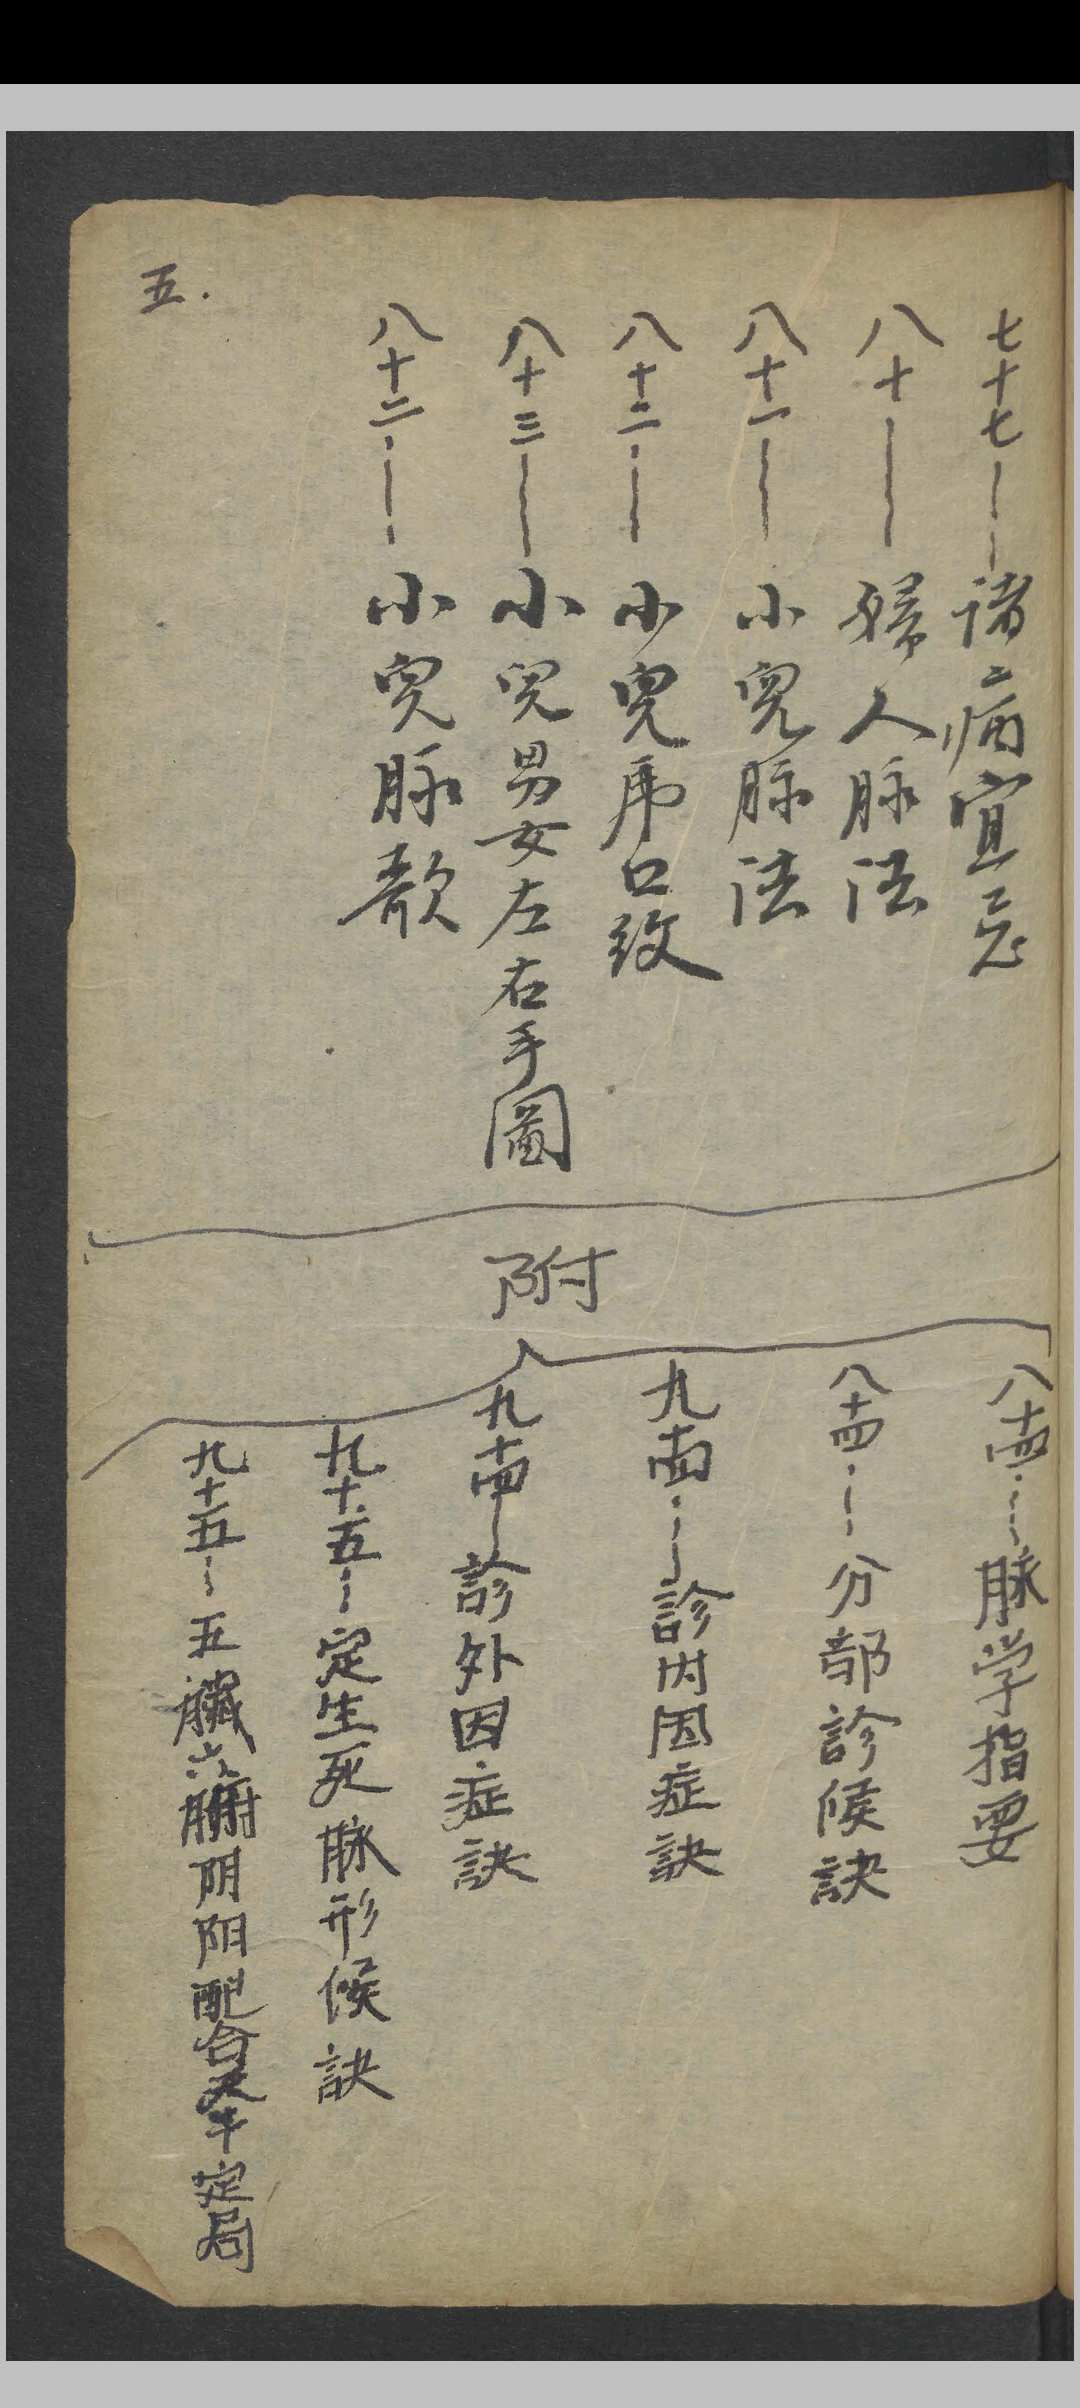 七十七——諸病宜忌
八十——婦人脉法
八十一——小兒脉法
八十二——小兒虎口纹
八十三——小兒男女左右手圖
八十二——小兒脉歌
五.
附
八十四——脉学指要
八十四——分部診候訣
九十四——診内因症訣
九十四——診外因症訣
九十五——定生死脉形候訣
九十五——五臟六腑阴阳配合天干定局